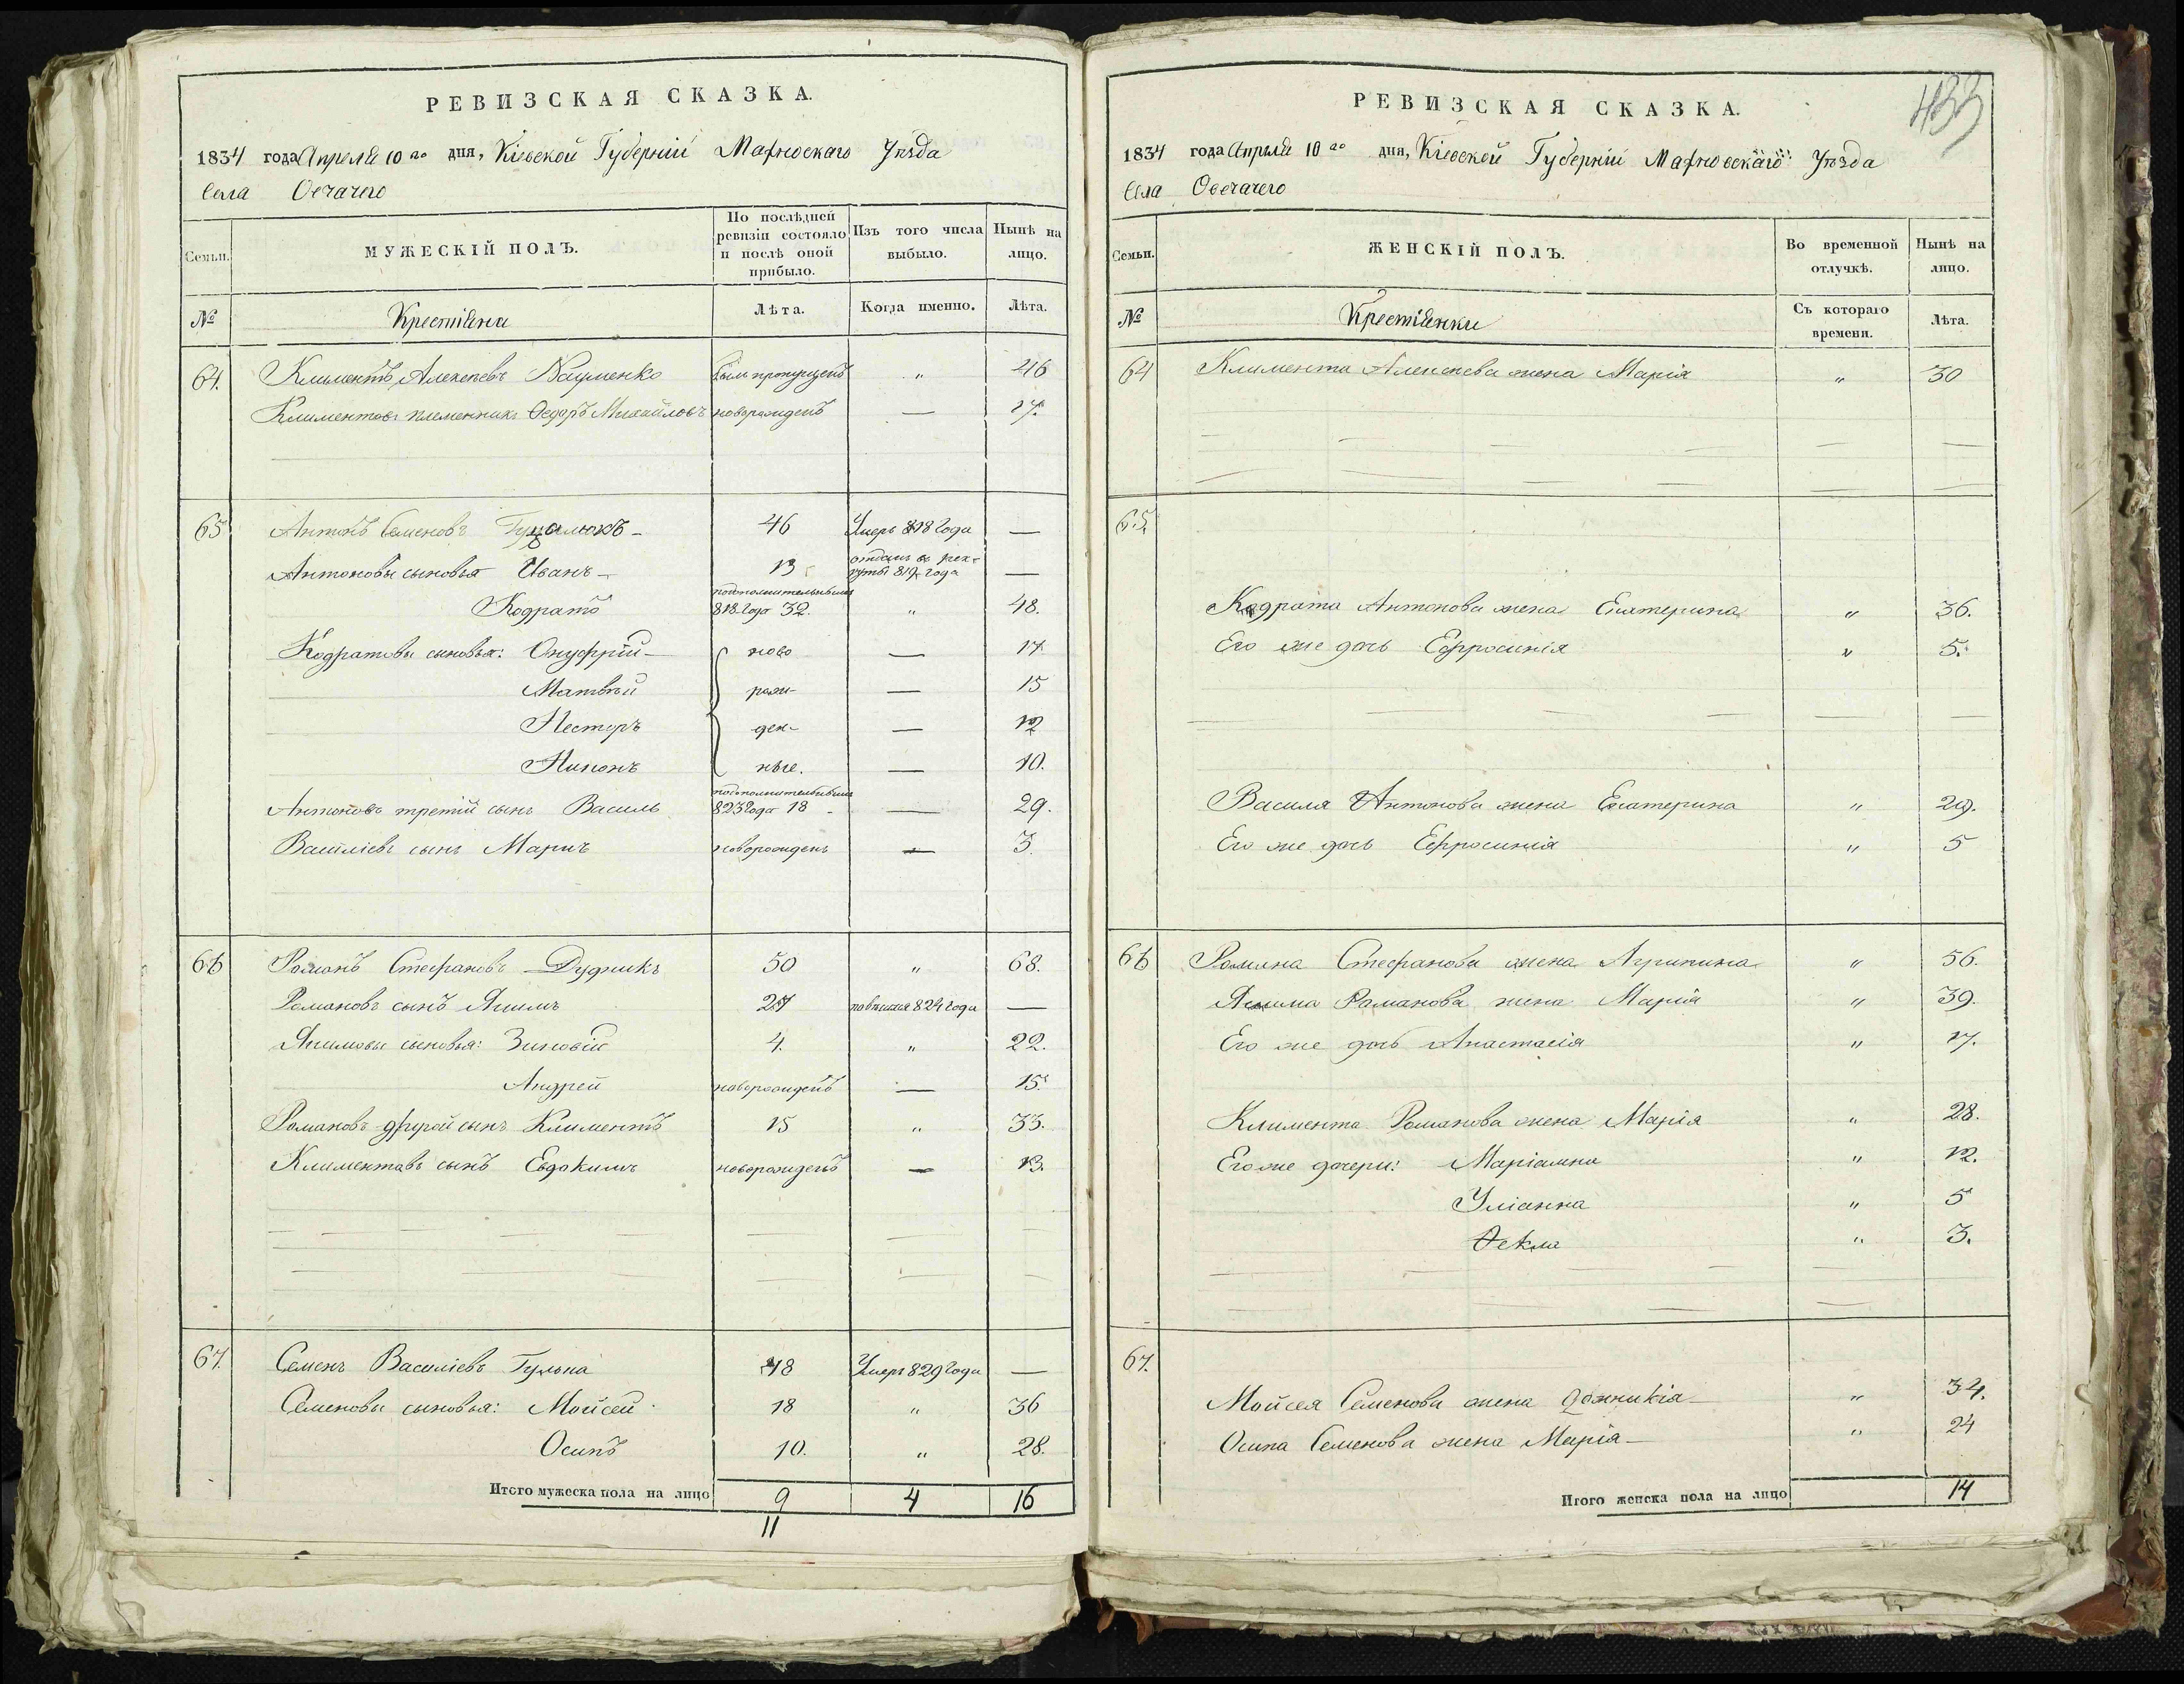 РЕВИЗСКАЯ СКАЗКА.
1834 года Апреля 10 го дня, Кіевской Губерніи Махновскаго Уѣзда
Села Овечачего
Семьи.
МУЖЕСКІЙ ПОЛЪ.
По послѣдней ревизіи состояло и послѣ оной прибыло.
Изъ того числа выбыло.
Нынѣ на лицо.
№
Крестіяни
Лѣта.
Когда именно.
Лѣта.
64. Климентъ Алексѣевъ Науменко былъ пропущенъ " 46
Климентовъ племенникъ Ѳедоръ Михайловъ новорожденъ — 17.
65 Антонъ Семеновъ — 46 Умеръ 818 года —
Антоновы сыновья Иванъ — 13 отданъ въ рекруты 819 года —
Кодратъ 818 года 32. " 48.
Кодратовы сыновья: Онуфрій — ново — 17
Матвѣй рож- — 15
Несторъ ден- — 12
Никонъ ные. — 10.
Антоновъ третій сынъ Василь 823 года 18 — 29.
Василіевъ сынъ новорожденъ — 3.
66 Романъ Стефановъ Дудникъ 50 " 68.
Романовъ сынъ Якимъ 27 824 года —
Якимовы сыновья: Зиновій 4. " 22.
Андрей новорожденъ — 15.
Романовъ другой сынъ Климентъ 15 " 33.
Климентовъ сынъ Евдокимъ новорожденъ — 13.
67. Семенъ Василіевъ Гулька 48 Умеръ 829 года —
Семеновы сыновья: Мойсей 18 " 36
Осипъ 10. " 28.
Итого мужеска пола на лицо 9 4 16
11
433
РЕВИЗСКАЯ СКАЗКА.
1834 года Апрыля 10 го дня, Кіевской Губерніи Махновскаго Уѣзда
Села Овечачего
Семьи.
ЖЕНСКІЙ ПОЛЪ.
Во временной отлучкѣ.
Нынѣ на лицо.
№
Крестіянки
Съ котораго времени.
Лѣта.
64 Климента Алексѣева жена Марія " 30
65.
Кодрата Антонова жена Екатерина " 36.
Его же дочь Ефросинія " 5.
Василя Антонова жена Екатерина " 29.
Его же дочь Ефросинія " 5
66 Романа Стефанова жена Агрипина " 56.
Якима Романова жена Марія " 39.
Его же дочь Анастасія " 17.
Климента Романова жена Марія " 28.
Его же дочери: Маріамна " 12.
Уліанна " 5
Ѳекла " 3.
67.
Мойсея Семенова жена " 34.
Осипа Семенова жена Марія — " 24
Итого женска пола на лицо 14